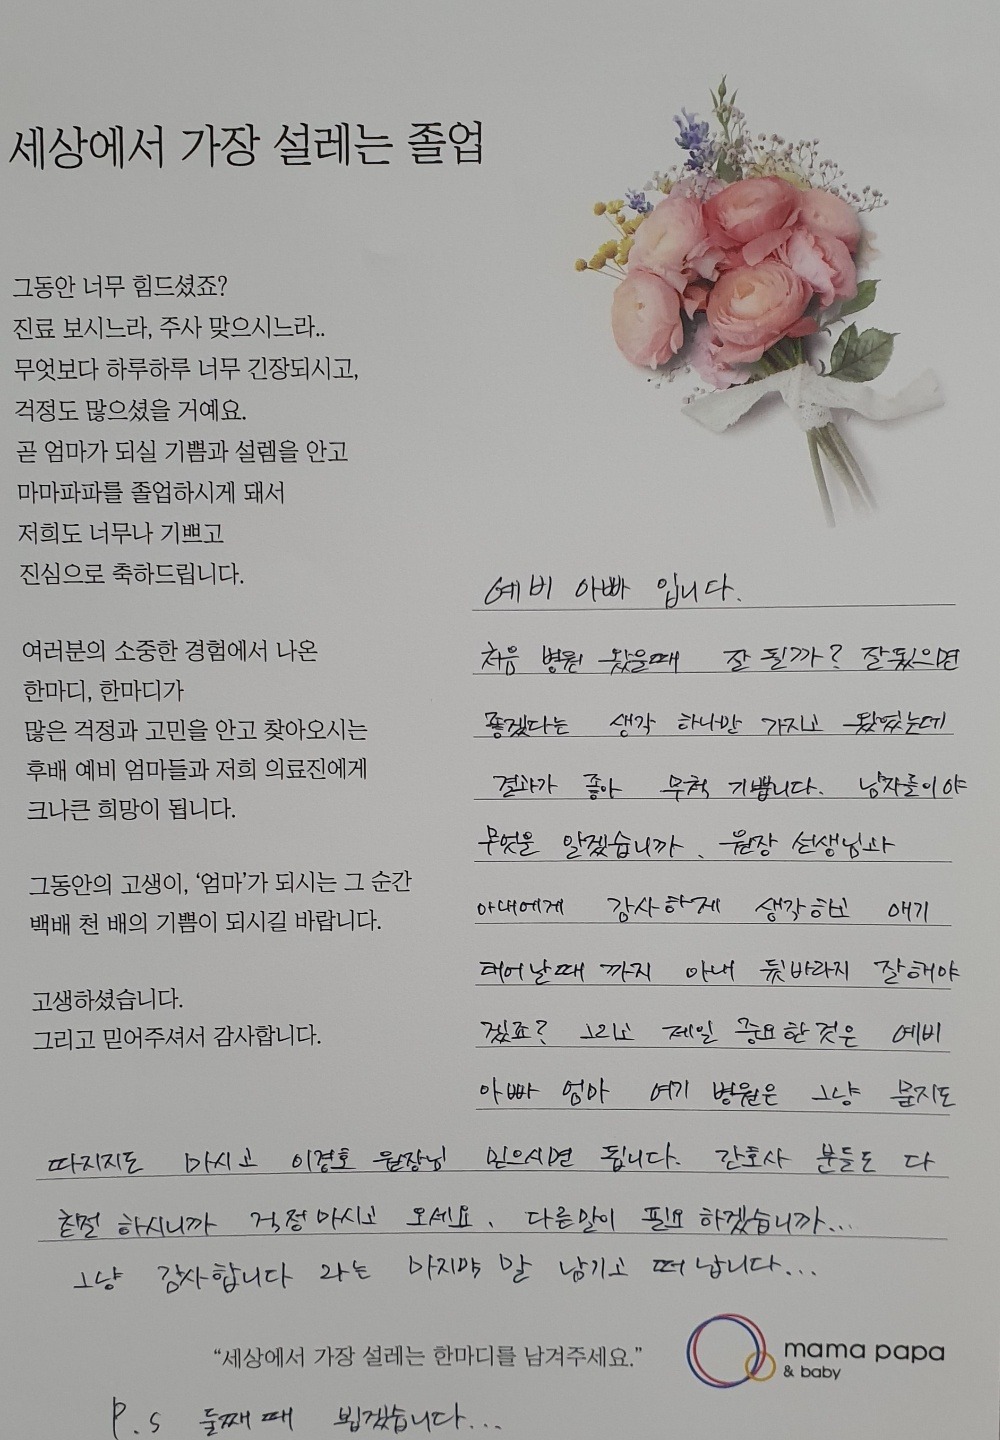 세상에서 가장 설레는 졸업
그동안 너무 힘드셨죠?
진료 보시느라, 주사 맞으시느라..
무엇보다 하루하루 너무 긴장되시고,
걱정도 많으셨을 거예요.
곧 엄마가 되실 기쁨과 설렘을 안고
마마파파를 졸업하시게 돼서
저희도 너무나 기쁘고
진심으로 축하드립니다.
여러분의 소중한 경험에서 나온
한마디, 한마디가
많은 걱정과 고민을 안고 찾아오시는
후배 예비 엄마들과 저희 의료진에게
크나큰 희망이 됩니다.
그동안의 고생이, ‘엄마’가 되시는 그 순간
백배 천 배의 기쁨이 되시길 바랍니다.
고생하셨습니다.
그리고 믿어주셔서 감사합니다.
예비 아빠 입니다.
처음 병원 왔을때 잘 될까? 잘됬으면
좋겠다는 생각 하나만 가지고 왔었는데
결과가 좋아 무척 기쁩니다. 남자들이야
무엇을 알겠습니까. 원장 선생님과
아내에게 감사하게 생각하고 애기
태어날때 까지 아내 뒷바라지 잘해야
겠죠? 그리고 제일 중요한것은 예비
아빠 엄마 여기 병원은 그냥 묻지도
따지지도 마시고 이경호 원장님 믿으시면 됩니다. 간호사 분들도 다
친절 하시니까 걱정마시고 오세요. 다른말이 필요 하겠습니까...
그냥 감사합니다 라는 마지막 말 남기고 떠납니다...
“세상에서 가장 설레는 한마디를 남겨주세요.”
mama papa
& baby
P.s 둘째때 뵙겠습니다...